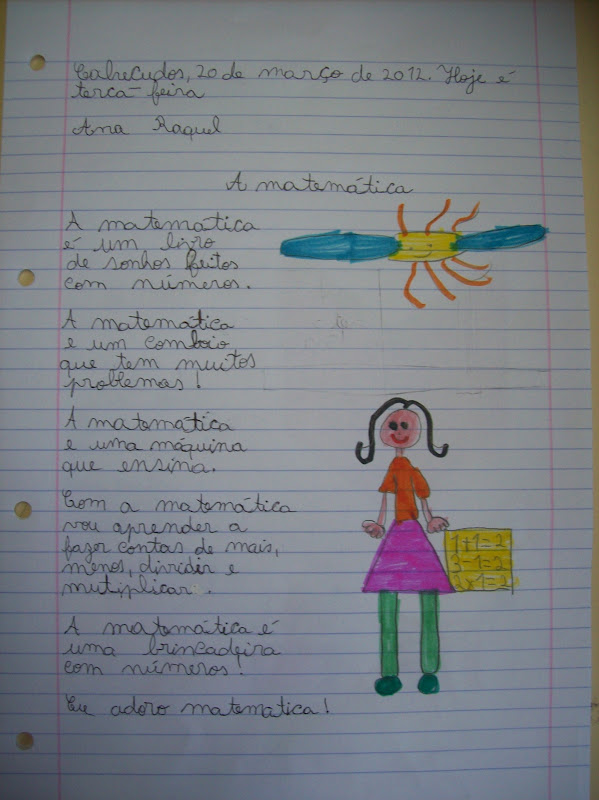 Cabeçudos, 20 de março de 2012. Hoje é
terca-feira
Ana Raquel
A matemática
A matematica
é um livro
de sonhos feitos
com números.
A matemática
e um comboio
que tem muitos
problemas!
A matemática
e uma máquina
que ensina.
Com a matemática
vou aprender a
fazer contas de mais,
menos, dividir e
mutiplicar.
A matemática é
uma brincadeira
com números!
Eu adoro matemática!
1+1=2
3-1=2
2x1=2